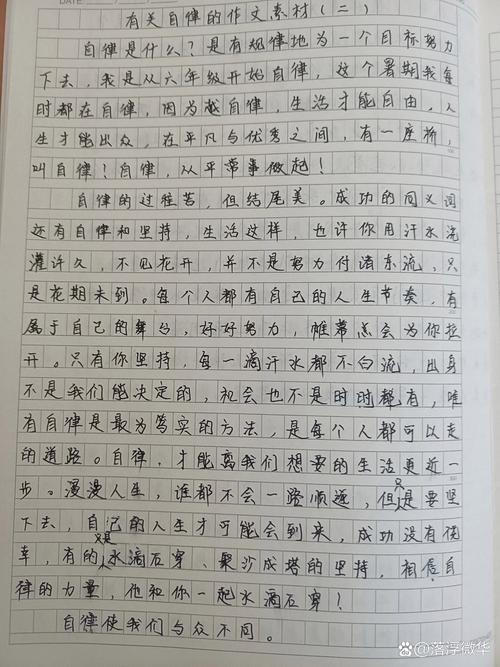 有关自律的作文素材(二)
自律是什么?是有规律地为一个目标努力
下去,我是从六年级开始自律,这个暑期我每
时都在自律,因为越自律,生活才能自由,人
生才能出众,在平凡与优秀之间,有一座桥,
叫自律!自律,从平常事做起!
自律的过程苦,但结尾美。成功的同义词
还有自律和坚持,生活这样,也许你用汗水浇
灌许久,不见花开,并不是努力付诸东流,只
是花期未到。每个人都有自己的人生节奏,有
属于自己的舞台,好好努力,帷幕总会为你拉
开。只有你坚持,每一滴汗水都不白流,出身
不是我们能决定的,机会也不是时时都有,唯
有自律是最为笃实的方法,是每个人都可以走
的道路。自律,才能离我们想要的生活更近一
步。漫漫人生,谁都不会一路顺遂,但只是要坚
下去,自己的人生才可能会到来,成功没有便
车,有的只是水滴石穿、聚沙成塔的坚持,相信自
律的力量,他和你一起水滴石穿!
自律使我们与众不同。
@落浮微华